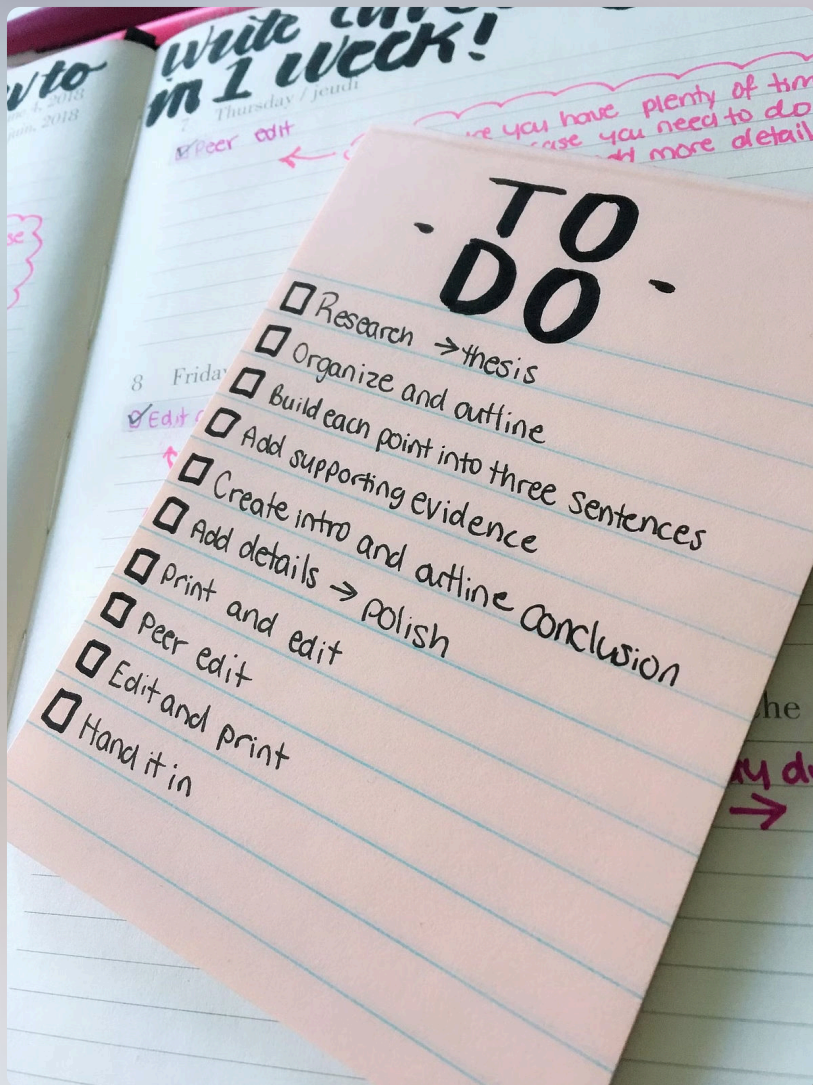 w to
write
in 1 week!
June 4, 2018
juin, 2018
7 Thursday / jeudi
Peer edit
you have plenty of
you need to do
more detail
se
TO
- DO -
Research → thesis
Organize and outline
Build each point into three sentences
Add supporting evidence
Create intro and outline conclusion
Add details → polish
Print and edit
Peer edit
Edit and print
Hand it in
8
Edit